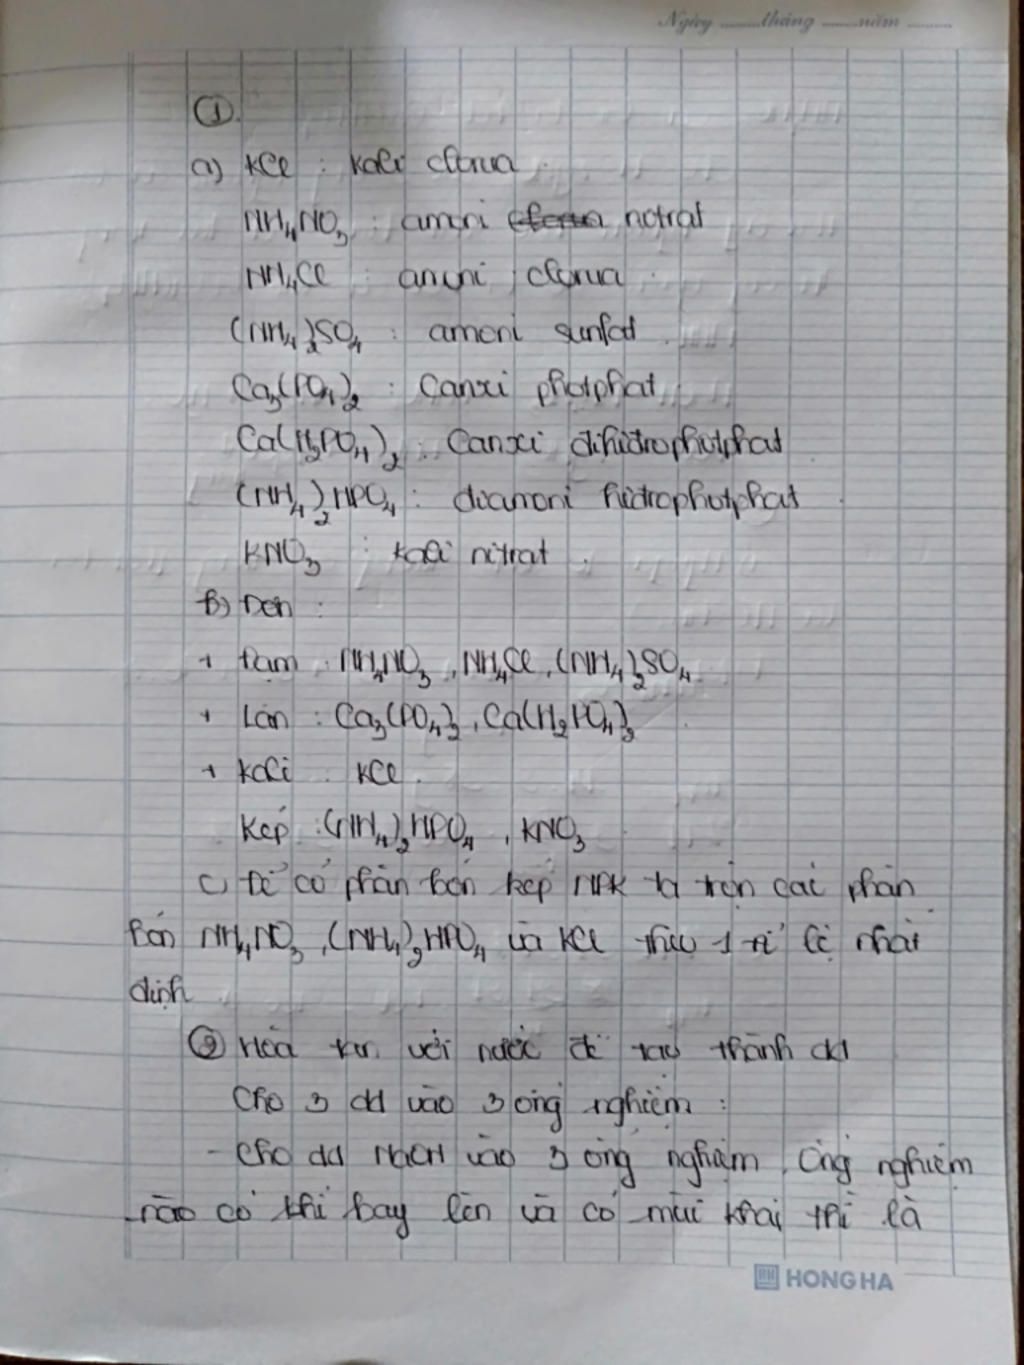 Ngày ........tháng ........năm ..........
①
a) KCl : kali clorua
NH₄NO₃ : amoni nitrat
NH₄Cl : amoni clorua
(NH₄)₂SO₄ : amoni sunfat
Ca₃(PO₄)₂ : Canxi photphat
Ca(H₂PO₄)₂ : Canxi đihiđrophotphat
(NH₄)₂HPO₄ : điamoni hiđrophotphat
KNO₃ : kali nitrat
b) Đơn :
+ Đạm : NH₄NO₃, NH₄Cl, (NH₄)₂SO₄
+ Lân : Ca₃(PO₄)₂, Ca(H₂PO₄)₂
+ Kali : KCl.
Kép : (NH₄)₂HPO₄, KNO₃
c) Để có phân bón kép NPK ta trộn các phân
bón NH₄NO₃, (NH₄)₂HPO₄ và KCl theo 1 tỉ lệ nhất
định
② Hòa tan với nước để tạo thành dd
Cho 3 dd vào 3 ống nghiệm :
- Cho dd NaOH vào 3 ống nghiệm. Ống nghiệm
nào có khí bay lên và có mùi khai thì là
HONG HA